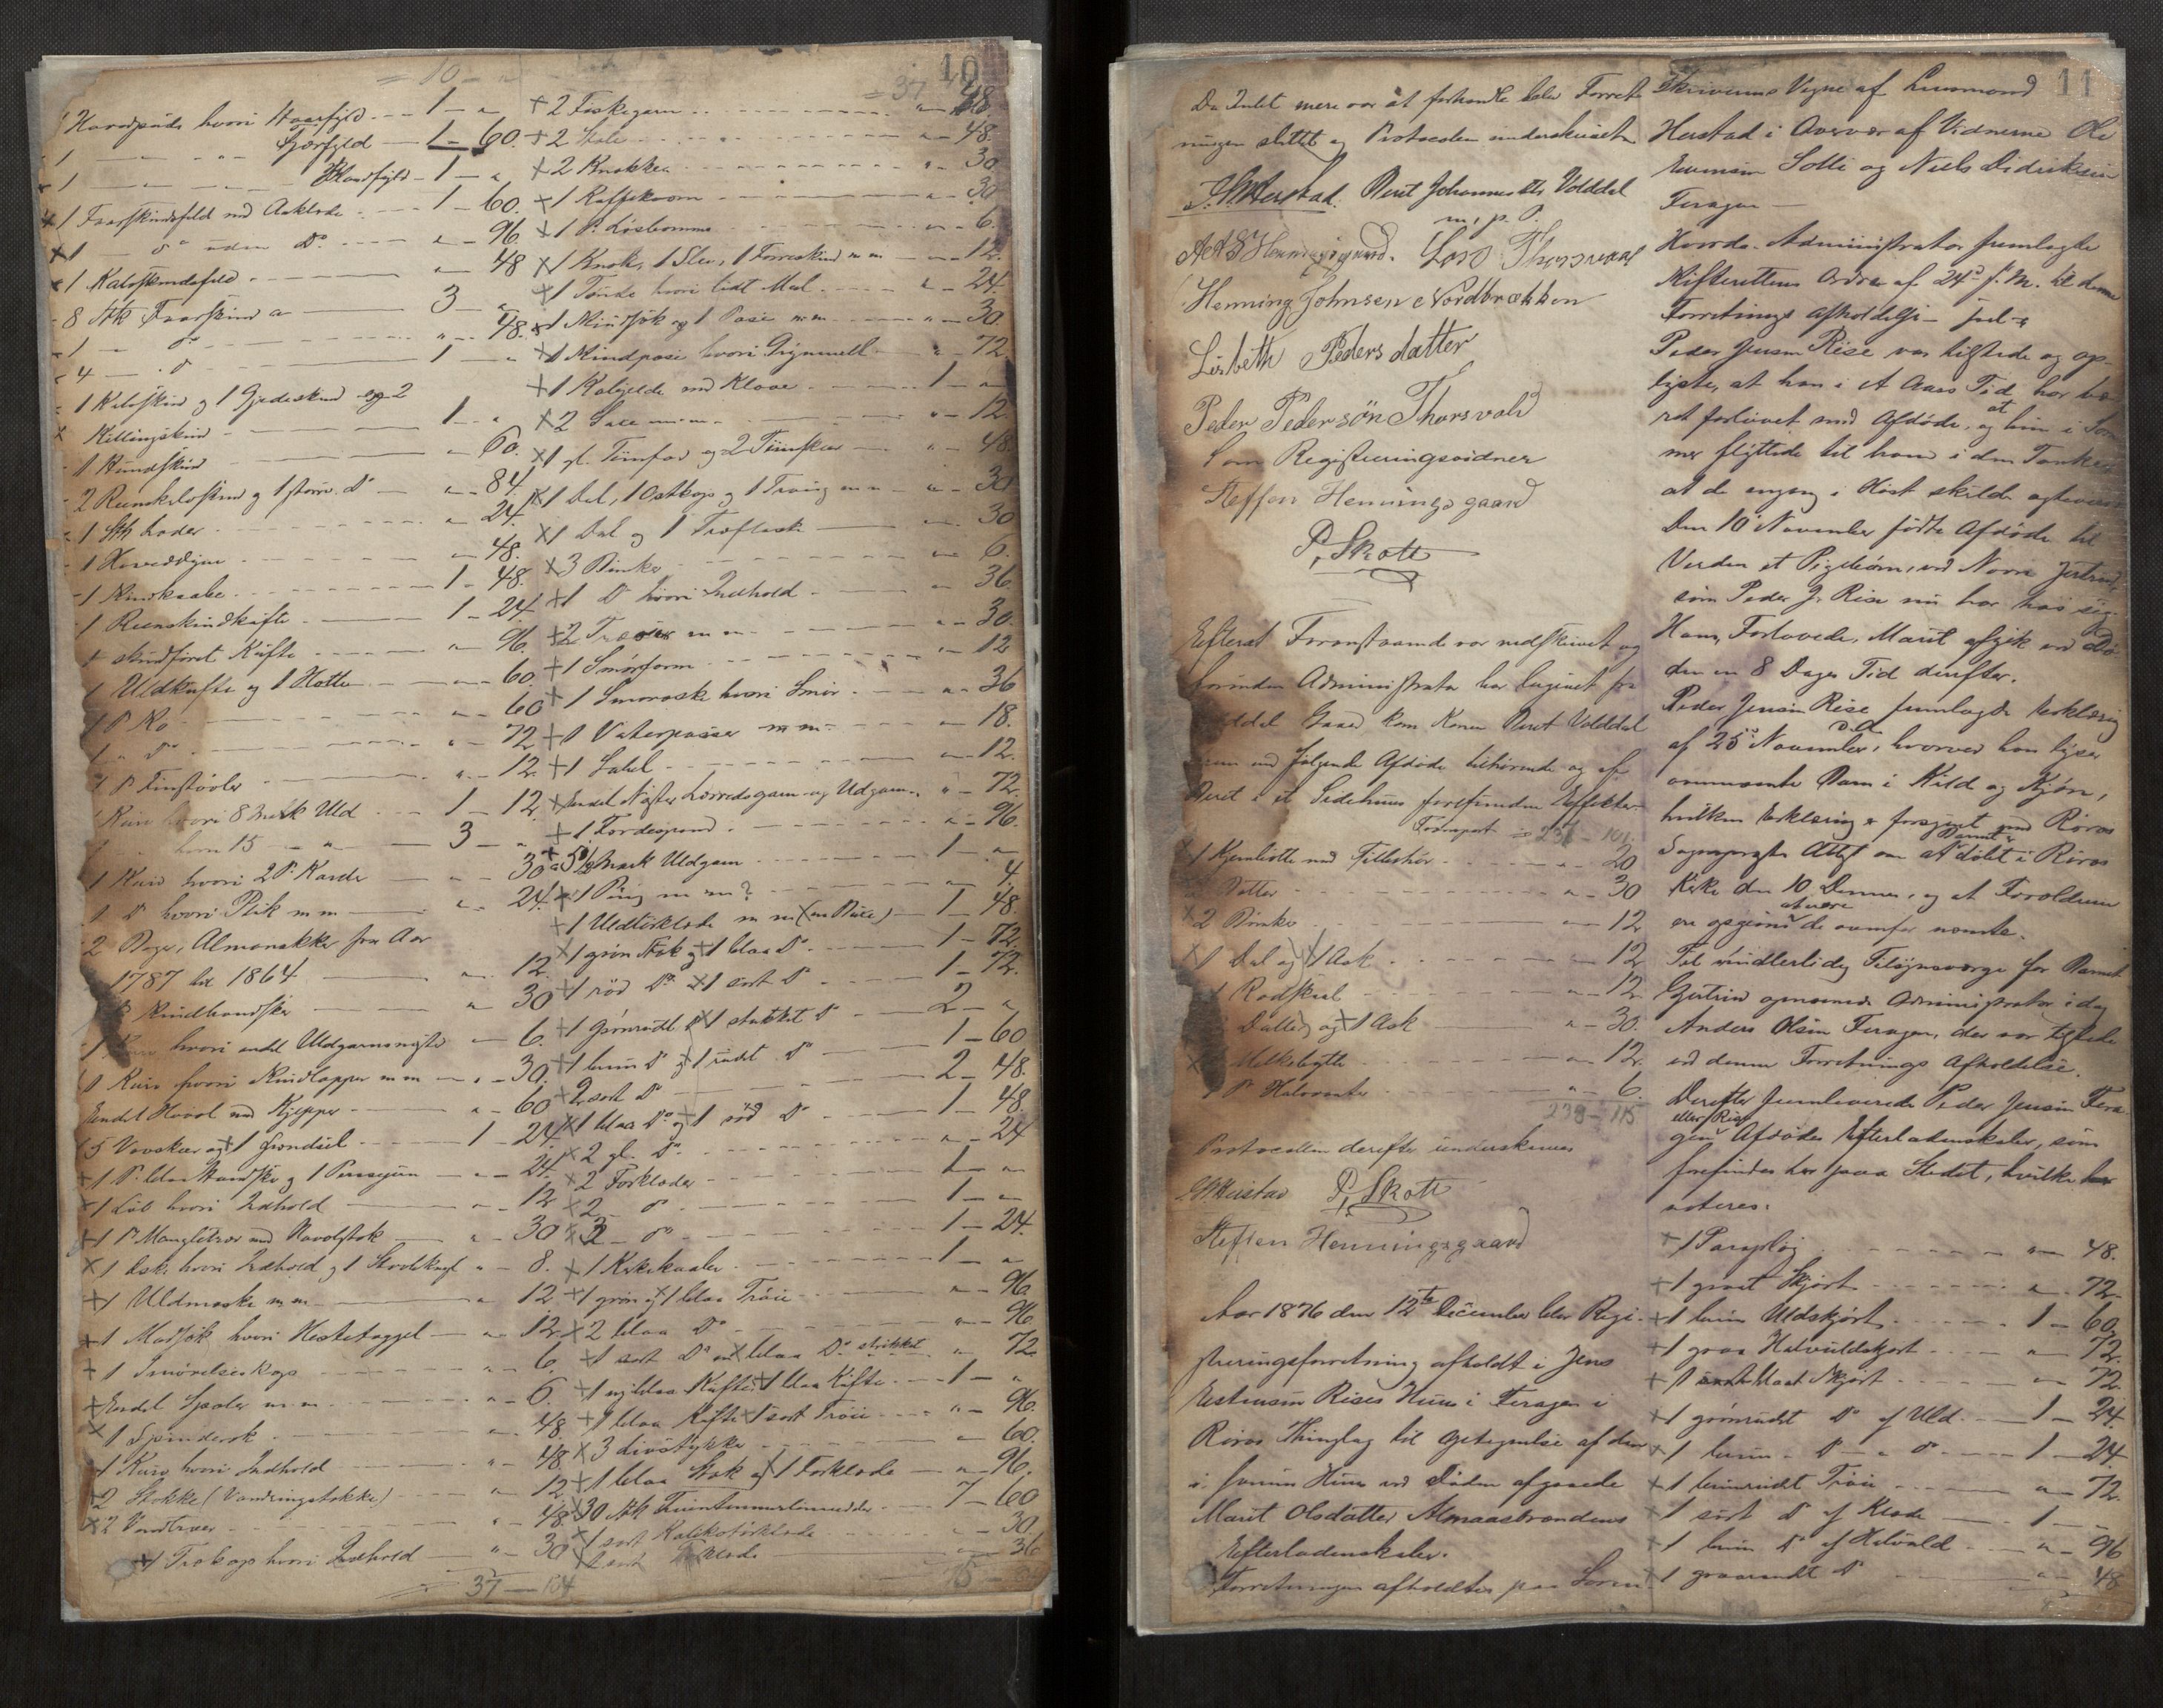 10
1 Hovedpude hvori Haarfyld 1 - "
1 - " - " Fjærfyld 1 - 60.
1 - - - Haarfyld - 1 - "
1 Faarskindsfeld med Aaklæde 1 - 60.
1 - do uden Do " - 96.
1 Kalvskindsfeld " - 48
8 Stk Faarskind a 3 - "
1 - do " - 48.
4 - do 1 - "
1 Kalvskind og 1 Gjedeskind og 2
Killingskind 1 - "
1 Hundskind " 60.
2 Reenskalvskind og 1 større Do " - 84
1 Stk Læder " - 24.
1 Hoveddyne " - 48.
1 Kindkaabe 1 - 48.
1 Reenskindkufte 1 - 24.
1 skindforet Kufte " 96.
1 Uldkufte og 1 Hatte " 60.
1 P. Ko " 60
1 " Do " - 72
1 P Finstøvler " - 12.
1 Kurv hvori 8 Mark Uld 1 - 12.
hvori 15 - " - " 3 - "
1 Kurv hvori 2 P. Karde " - 30
1 Do hvori Strik m m " 24.
2 Bøger, Almanakker fra Aar
1787 til 1864 " 12.
P Skindhandsker " 30
1 Kurv hvori endel Uldgarnsnøgler " 6.
1 Kurv hvori Skindlapper m m " - 30.
Endel Høvol med Kjepper " - 60
5 Vovskeer og 1 Grondsel 1 - 24.
1 P. blaa Handsker og 1 Penepung " - 24.
1 Lob hvori Indhold " - 12
1 P Mangletræer med Navalstok " 30
1 Ask hvori Indhold og 1 Stovlekneft " - 8.
1 Uldmaske m m " 12
1 Madsæk hvori Hestetaggel " - 12.
1 Smørelseskop " - 6.
Endel Spoler m m " - 6.
1 Spinderok " - 48
1 Kurv hvori Indhold " - 48
2 Stokke (Vandringstokke) " 12
2 Vandtræer " - 48
1 Trækop hvori Indhold " - 30
37 - 104
2 Fiskegarn " - 48
2 Stole " - 48.
2 Krakker " - 30
1 Kaffekværn " - 30
1 P. Løsbomme " - 6.
1 Krak, 1 Slev, 1 Forreskind m m " - 12.
1 Tønde hvori lidt Mel " - 24.
1 Skindsæk og 1 Pose m m " - 30.
1 Skindpose hvori Grynmell " - 72
1 Kobjelde med Klave 1 - "
2 Sæle m m " - 12
1 gl. Tiinfad og 2 Tiinskeer " - 48
1 Dal, 1 Ostkop og 1 Traug m m " - 30
1 Dal og 1 Træflaske " 30
3 Bimker " 6.
1 Do hvori Indhold " 36
2 Træer m m " - 30.
1 Smørform " 12
1 Smørask hvori Smør " - 36
1 Vaterpasser m m " 18.
1 Sabel " 12.
Endel Nøster Lærredsgarn og Udgarn " - 72.
1 Tordespand " - 96.
5 1/2 Mark Uldgarn 1 - "
1 Pung m m? " - 4.
1 Uldtørklæde m m (en Bøsse) 1 - 48.
1 grøn Stak og 1 blaa Do 1 - 72.
1 rød Do 1 sort Do 1 - 72.
1 Grønrødt og 1 stukket Do 2 - "
1 bruun Do og 1 rudet Do 1 - 60
2 sort Do 2 - 48.
1 blaa Do og 1 rød Do 1 - 48.
2 gl. Do " - 24
2 Forklæder 1 - "
2 - do 1 - "
3 - do 1 - 24.
1 Kirkekaaber 1 - "
1 grøn og 1 blaa Trøie " - 96
2 blaa Do " - 96
1 sort Do og blaa Do strikket " 72
1 ny blaa Kufte 1 blaa Kufte 1 - "
1 blaa Kufte 1 sort Trøie " - 96.
3 Livstykker " 60.
1 blaa Stak og 1 Forklæde " 96.
30 Stk Fruentimmerlinneder 7 - 60
1 sort Kalikotørklæde " - 30.
1 sort Tørklæde " - 36
11
Da Intet mere var at forhandle blev Forret-
ningen sluttet og Protocollen underskrevet
S. Herstad. Beret Johannesdtr Volddal
m. p. P.
A A S Henningsgaard. Lars Thorsvold
Henning Johnsen Nordbrækken
Lisbeth Pedersdatter
Peder Pedersøn Thorsvold
Som Registreringsvidner
Steffen Henningsgaard
P. Skott
Efterat Foranstaaende var nedskrevet og
forinden Administrator har begivet fra
Volddal Gaard kom Konen Beret Volddal
ind med følgende Afdøde tilhørende og af
Beret i et Sidehuus forefundne Effekter
Transport 237 - 101.
1 Kjernbøtte med Tilbehør " 20
Øtter " - 30
2 Bimker " 12
1 Dal og 1 Ask " 12
1 Rødskeel " 12.
Dalled og 1 Ask " - 30.
Melkebøtte " 12.
P Halvvanter " 6.
238 - 115
Protocollen derefter underskreven
S. Herstad P. Skott
Steffen Henningsgaard
Aar 1876 den 12te December blev Regi-
streringsforretning afholdt i Jens
Estensen Rises Huus i Feragen i
Røros Thinglag til Optegnelse af den
i samme Huus ved Døden afgaaede
Marit Olsdatter Almaasbrændens
Efterladenskaber.
Forretningen afholdtes paa Soren-
skriverens Vegne af Lensmand
Herstad i Overvær af Vidnerne Ole
Evensen Solli og Niels Didriksen
Feragen -
Hvorda. Administrator fremlagde
Skifterettens Ordre af 24de f. M. til denne
Forretnings Afholdelse - saal.
Peder Jensen Rise var tilstede og op-
lyste, at han i et Aars Tid har væ-
ret forlovet med Afdøde, og at hun i Som-
mer flyttede til ham i den Tanke
at de engang i Høst skulde ægtevies
Den 10 November fødte Afdøde til
Verden et Pigebarn, ved Navn Gjertrud,
som Peder J. Rise nu har hos sig.
Hans Forlovede, Marit afgik ved Dø-
den en 8 Dages Tid derefter.
Peder Jensen Rise fremlagde Erklæring
af 25de November d. A., hvorved han lyser
ommeldte Barn i Kuld og Kjøn,
hvilken Erklæring er forsynet med Røros
Sognepræsts Attest om at Barnet er døbt i Røros
Kirke den 10 Dennes, og at Forældrene
ere opgivne at være de ovenfor nævnte.
Til midlertidig Tilsynsværge for Barnet
Gjertrud opnævnede Administrator idag
Anders Olsen Feragen, der var tilstede
ved denne Forretnings Afholdelse.
Derefter fremleverede Peder Jensen Fera-
gen eller Rise Afdødes Efterladenskaber, som
forefindes her paa Stedet, hvilke her
noteres:
1 Parapløj " 48.
1 graat Skjørt " 72.
1 bruun Uldskjørt 1 - 60.
1 graa Halvuldskjort " 72.
1 sort blaat Skjørt " 72.
1 grønrudet Do af Uld 1 - 24.
1 bruun - Do " do 1 - 24.
1 bruunrudet Trøie " 72.
1 sort Do af Klæde 1 - -
1 bruun Do af Halvuld " - 96
1 graarandt Do " - 48